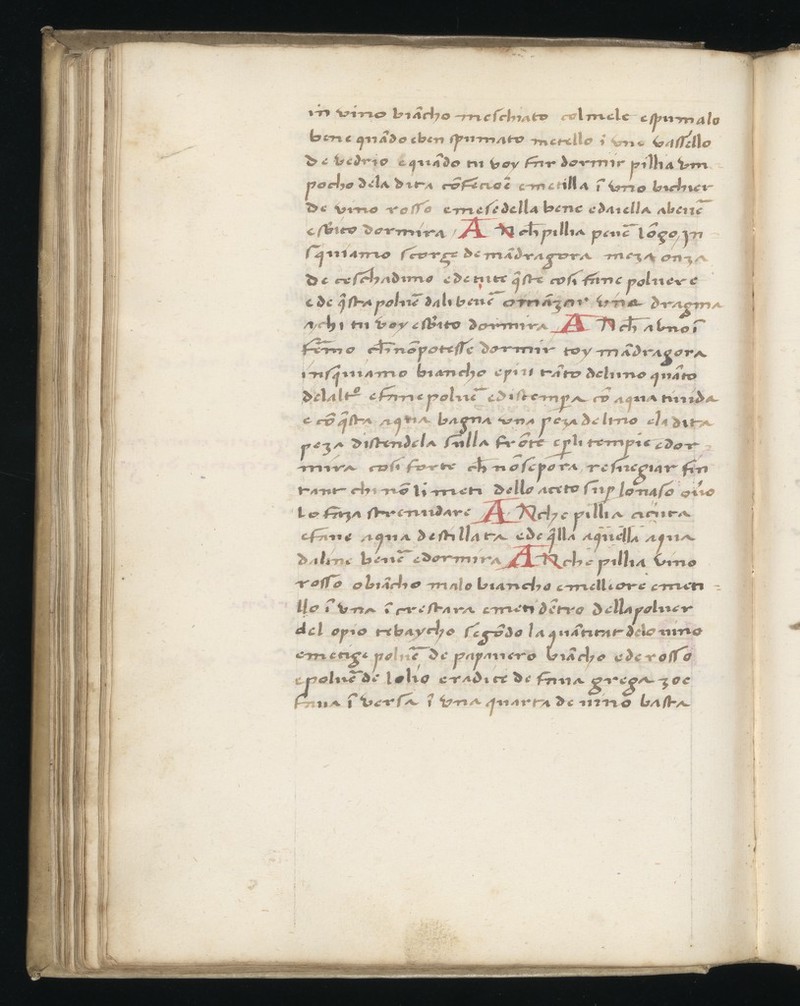 in vino biãcho meschiato col mele e spumalo
bene quãdo eben spumato metello ĩ uno vassello
de vedrio e quãdo tu voy far dormir pillia vm
pocho dela dita cõfecioẽ e metilla ĩ vno bichier
de vino rosso e mesedella bene e daiella abeuẽ
e sb̃ito dormira / ANch̃ pillia peuẽ lõgo, Jn
sq̃uiamo scorge de mãdragora meza onza
de ceschaduno e de tute q̃ste cosi fane poluere
e de q̃sta poluẽ dali beuẽ o mãzar vna dragma
a chi tu voy e sb̃ito dormira ANch̃ a uno ĩ
fẽmo ch̃ nõ potesse dormir toy mãdragora
insq̃uiamo biancho e piu tãto deluno quãto
delaltº e fane poluẽ e distempa cõ aqua tiuida
e cõ q̃sta aqua bagna vna peza de lino e la dita
peza distendela sulla frõte e p̃ li tempie e dor
mira cosi forte ch̃ nõ se pora resuegiar fin
tant chi nõ li meti dello aceto sup lo naso ou̾o
lo faza strenudare ANche pillia cicuta
e fane aqua destillata e de q̃lla aquella aqua
daline beuẽ e dormira ANche pillia vino
rosso o biãcho ma lo biancho e melliore e meti
llo ĩ vna ĩcrestara e meti dẽtro della poluer
del opio tebaycho segõdo la quãtitat delo uino
e metige poluẽ de papauero biãcho e de rosso
e poluẽ de lolio e radice de faua grega zoe
faua ĩuersa ĩ vna quarta de uino basta